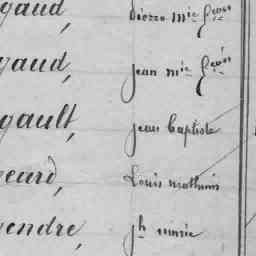 gaud, pierre m^ie fran^ois
gaud, jean m^ie fran^ois
gault, jean baptiste
eurd, Louis mathurin
gendre, j^h marie